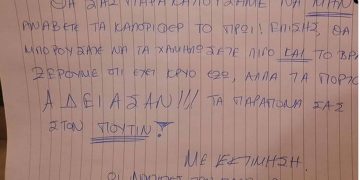 ΘΑ ΣΑΣ ΠΑΡΑΚΑΛΟΥΣΑΜΕ ΝΑ ΜΗΝ
ΑΝΑΒΕΤΕ ΤΑ ΚΑΛΟΡΙΦΕΡ ΤΟ ΠΡΩΙ! ΕΠΙΣΗΣ, ΘΑ
ΜΠΟΡΟΥΣΑΤΕ ΝΑ ΤΑ ΧΑΜΗΛΩΣΕΤΕ ΛΙΓΟ ΚΑΙ ΤΟ ΒΡΑ
ΞΕΡΟΥΜΕ ΟΤΙ ΕΧΕΙ ΚΡΥΟ ΕΞΩ, ΑΛΛΑ ΤΑ ΠΟΡΤΟ
ΑΔΕΙΑΣΑΝ!!! ΤΑ ΠΑΡΑΠΟΝΑ ΣΑΣ
ΣΤΟΝ ΠΟΥΤΙΝ!
ΜΕ ΕΚΤΙΜΗΣΗ
ΟΙ